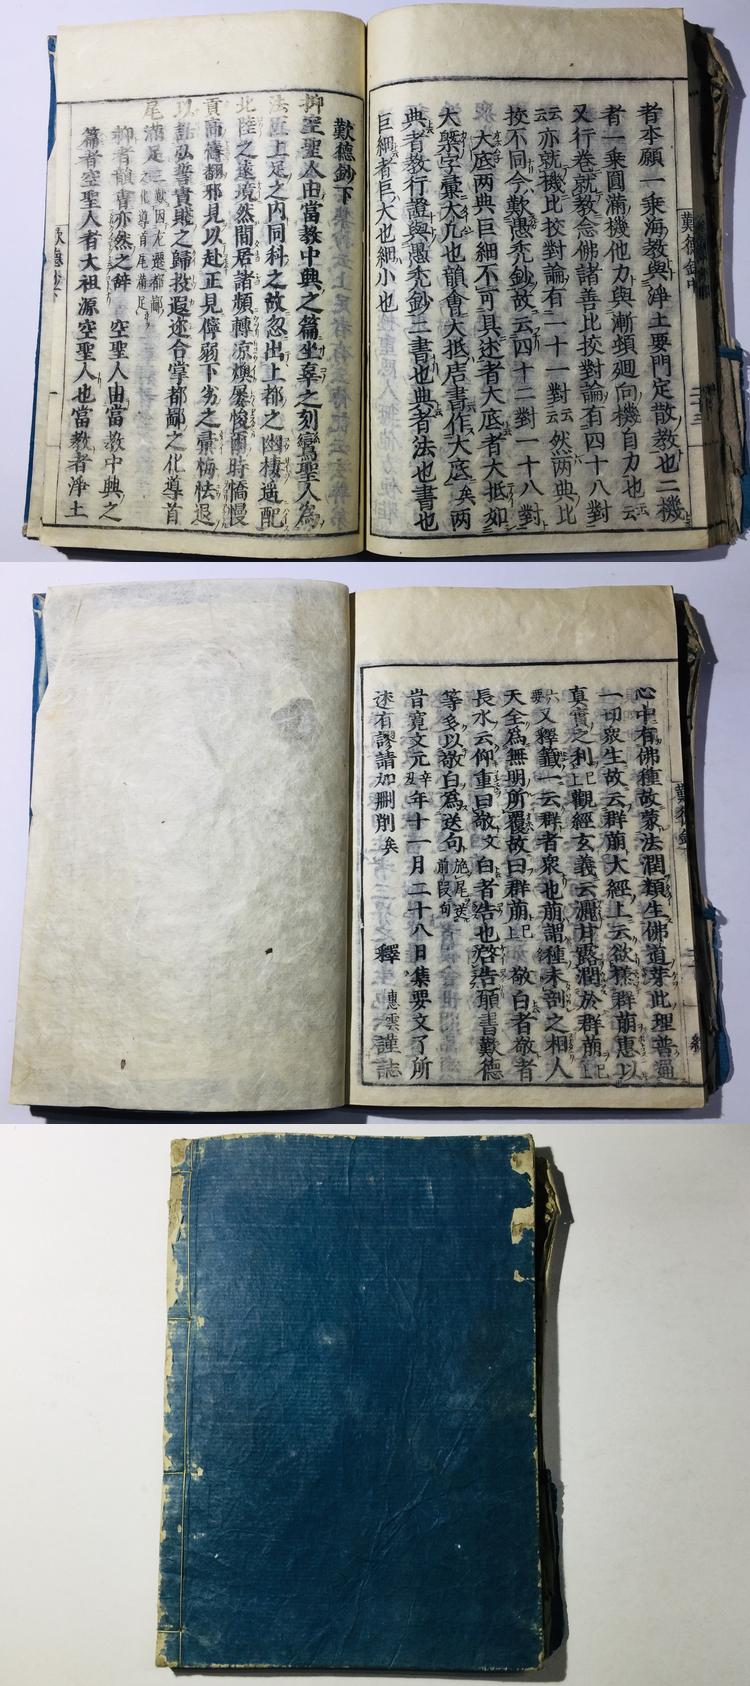 者本願一乗海教與淨土要門定散教也二機
者一乗圓満機他力與漸頓廻向機自力也云
又行巻就教念佛諸善比挍對論有四十八對
云亦就機比挍對論有二十一對云然兩典比
挍不同今歎愚禿鈔故云四十二對一十八對
大底兩典巨細不可具述者大底者大抵如
大槩字彙大凢也韻會大抵唐書作大底矣兩
典者教行證與愚禿鈔二書也典者法也書也
巨細者巨大也細小也
歎德鈔中
歎德鈔下
抑空聖人由當教中興之篇坐辜之刻鸞聖人為
法匠上足之内同科之故忽出上都之幽棲遥配
北陸之遠境然間居諸頻轉凉燠屡悛爾時憍慢
貢高儔翻邪見以赴正見儜弱下劣之彙悔怯退
以誥弘誓實賤之歸投遐迩合掌都鄙之化導首
尾満足
抑者韻會亦然之辞 空聖人由當教中興之
篇者空聖人者大祖源空聖人也當教者淨土
歎德鈔下 一
心中有佛種故蒙法潤類生佛道芽此理普遍
一切衆生故云群萠大經上云欲拯群萠惠以
真實之利上巳觀經玄義云灑甘露潤於群萠巳
六要又釋籤一云群者衆也萠謂種未剖之相人
天全為無明所覆故曰群萠巳上 敬白者敬者
長水云仰重曰敬文白者告也啓告願書歎德
等多以敬白為送句施尾袟前段句
旹寛文元辛丑年十一月二十八日集要文了所
述有謬請加刪削矣 釋 惠雲謹誌